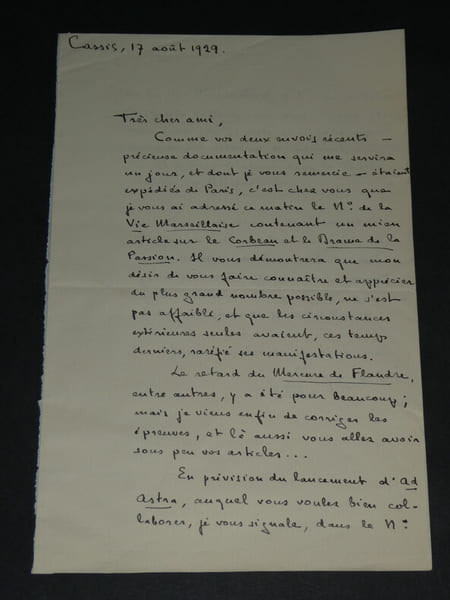 Cassis, 17 août 1929.
Très cher ami,
Comme vos deux envois récents —
précieuse documentation qui me servira
un jour, et dont je vous remercie — étaient
expédiés de Paris, c'est chez vous que
je vous ai adressé ce matin le N° de la
Vie Marseillaise contenant un mien
article sur le Corbeau et le Drame de la
Passion. Il vous démontrera que mon
désir de vous faire connaître et apprécier
du plus grand nombre possible, ne s'est
pas affaibli, et que les circonstances
extérieures seules avaient, ces temps
derniers, raréfié ses manifestations.
Le retard du Mercure de Flandre,
entre autres, y a été pour beaucoup ;
mais je viens enfin de corriger les
épreuves, et là aussi vous allez avoir
sous peu vos articles...
En prévision du lancement d'Ad
Astra, auquel vous voulez bien col-
laborer, je vous signale, dans le N°